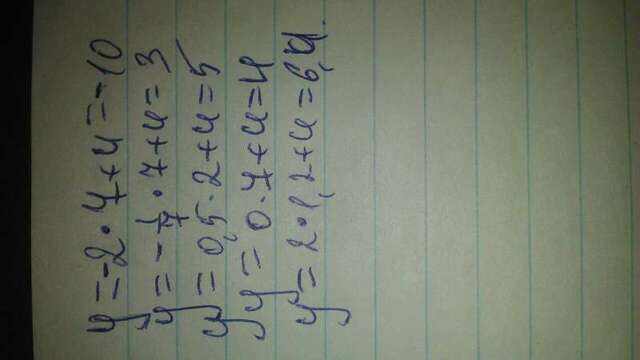 y=-2·7+4=-10
y=-1/7·7+4=3
y=0,5·2+4=5
y=0·7+4=4
y=2·1,2+4=6,4.